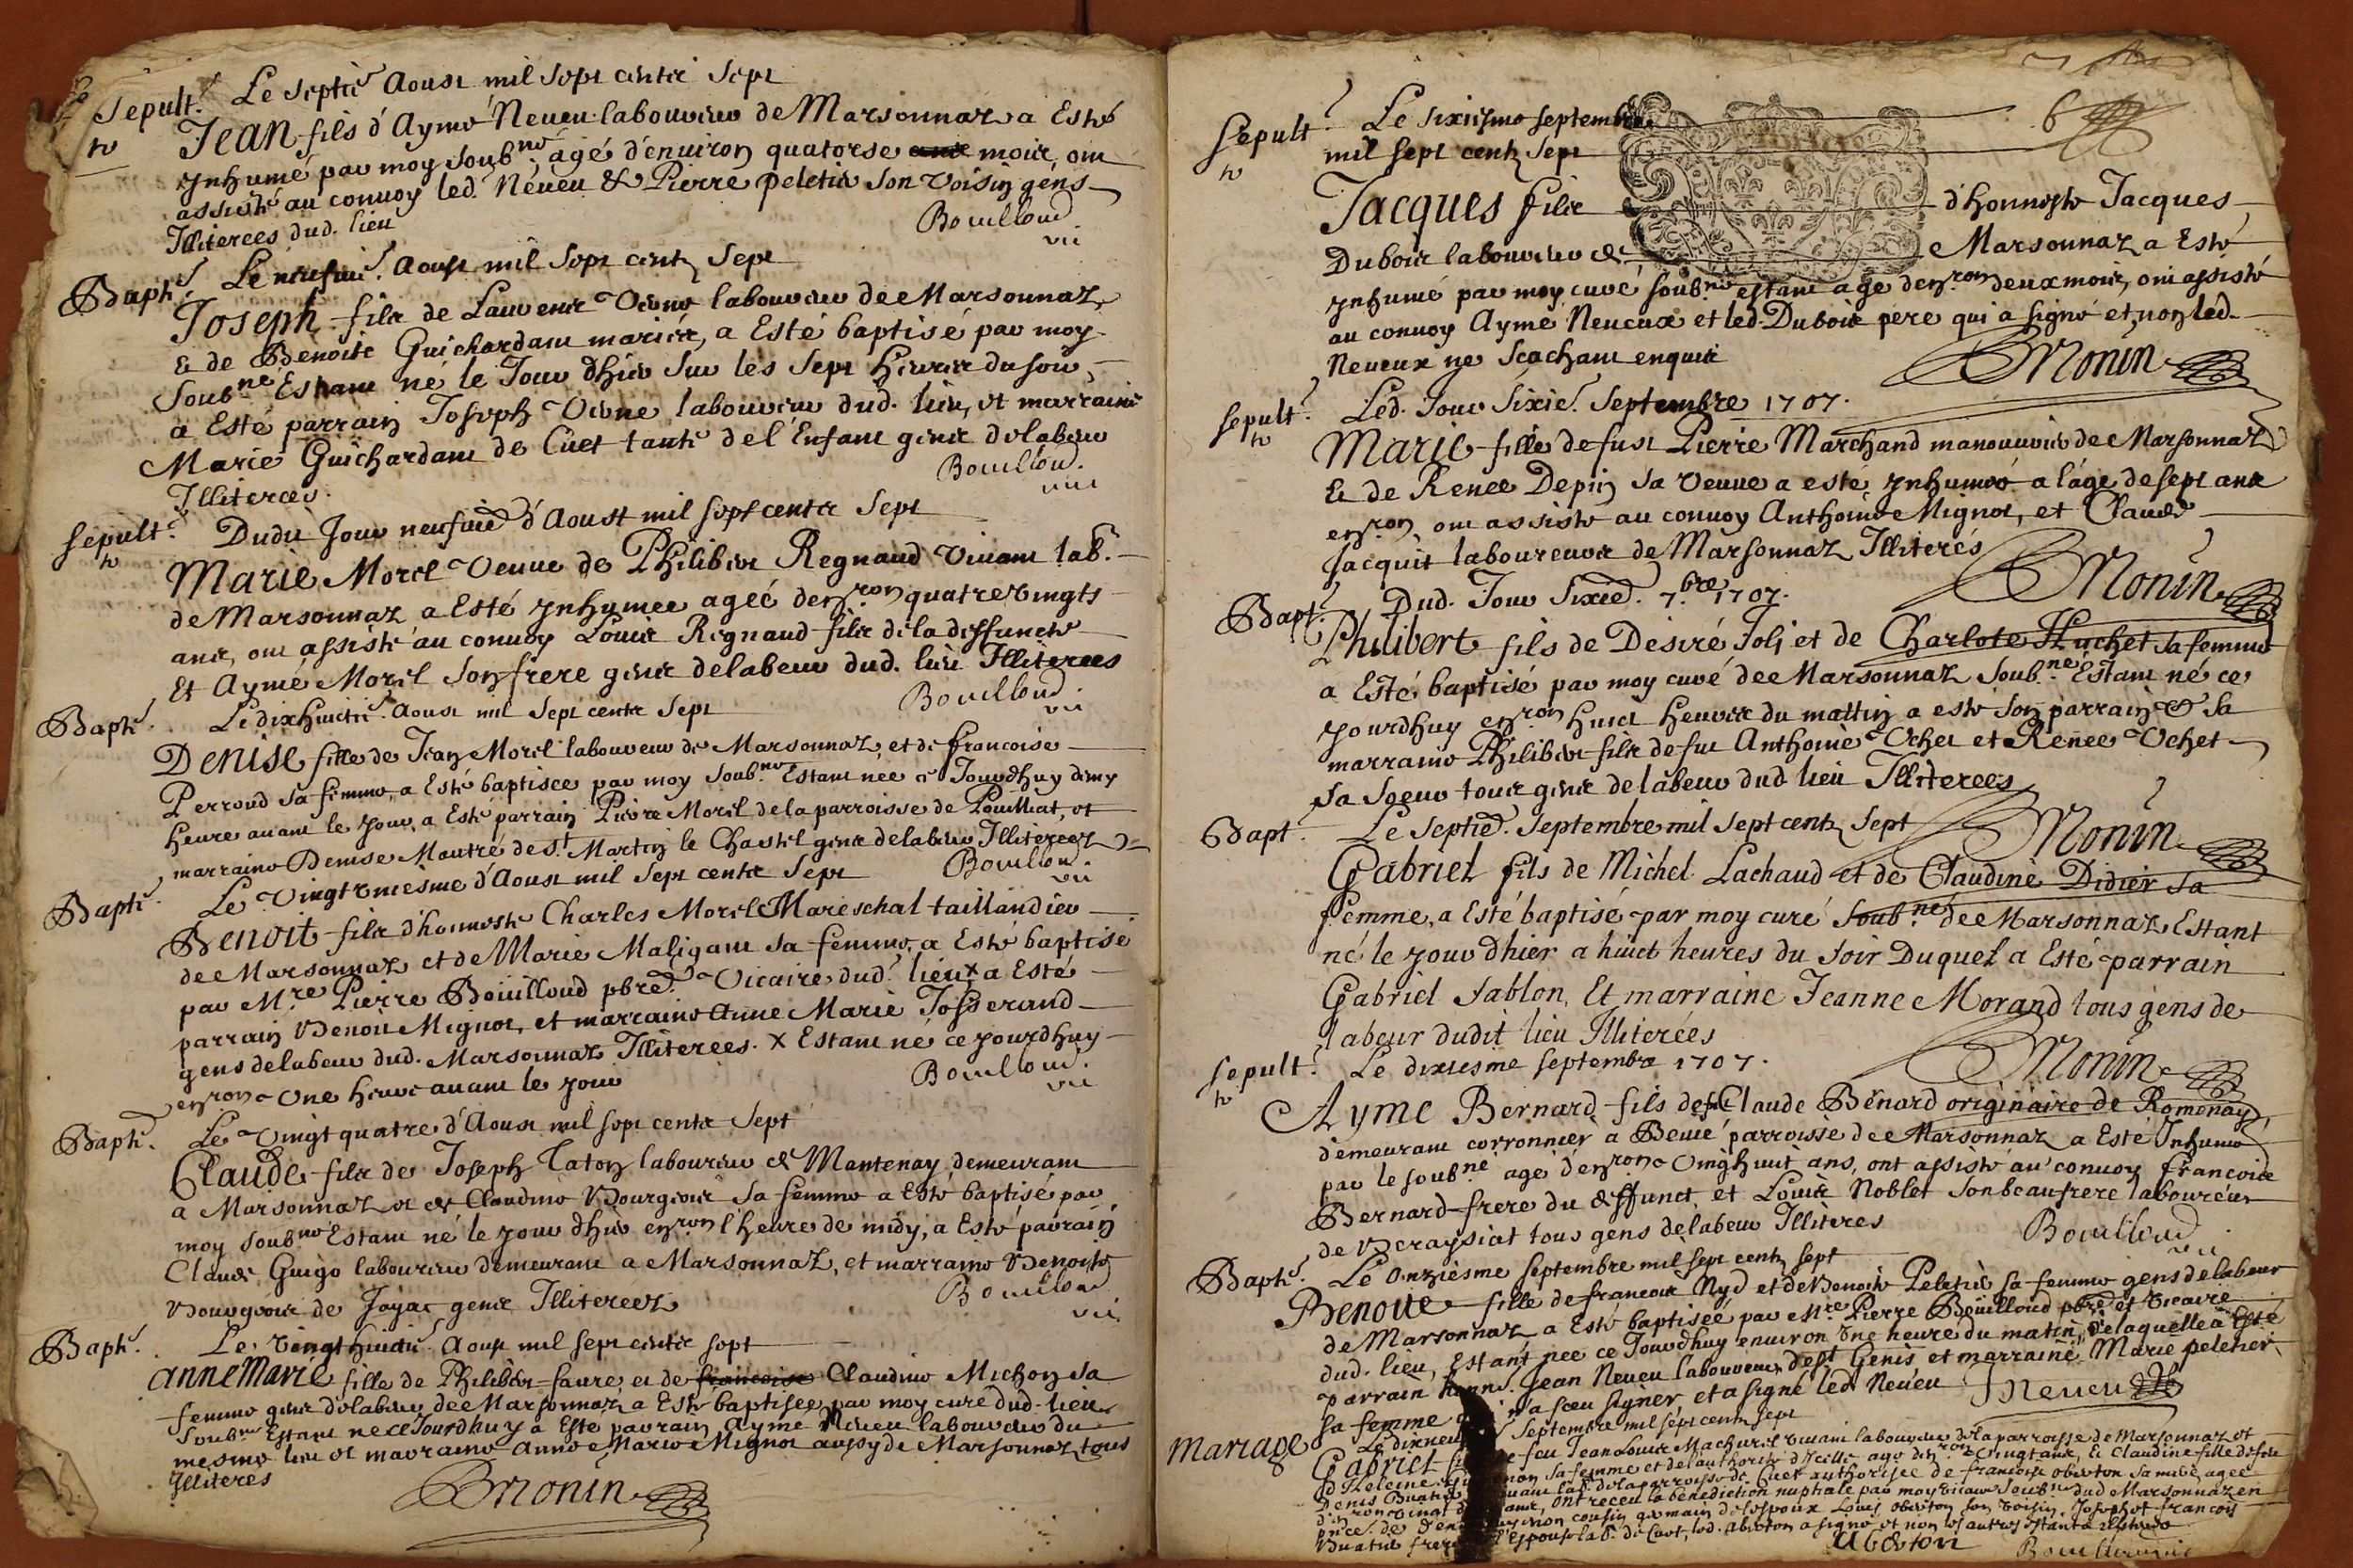 Sepult.e Le Septie Aoust mil Sept cents Sept
JEAN fils d'Aymé Neueu laboureur de Marsonnaz a Esté
jnhumé par moy soub.né agé d'enuiron quatorse mois, ont
assisté au conuoy led. Neueu & Pierre peletier son Voisin gens
Illiterees dud. lieu
Bouilloud
vic
Baph.e Le neufuie. Aoust mil Sept cents Sept
Joseph fils de Laurent Vieune laboureur de Marsonnaz
& de Benoite Guichardant mariés, a Esté baptisé par moy
Soub.né Estant né le Jour dhier sur les Sept Heures du soir
a Esté parrain Joseph Vieune laboureur dud. lieu, et marraine
Marie Guichardant de Cuet tante de l'Enfant gens de labeur
Illiterees.
Bouilloud.
vic
Sepult.e Dudit Jour neufuie d'Aoust mil sept cents Sept
Marie Morel Veuue de Philibert Regnaud Viuant lab.r
de Marsonnaz a Esté jnhumee ageé denron quatrevingts
ans, ont assisté au conuoy Louis Regnaud fils de la deffuncte
Et Aymé Morel son frere gens de labeur dud. lieu Illiterees
Bouilloud.
vic
Baph.e Le dixhuictie. Aoust mil Sept cents Sept
DENISE fille de Jean Morel laboureur de Marsonnaz et de francoise
Perroud sa femme, a Esté baptisee par moy soub.né Estant née a Jourdhuy demy
heure auant le jour, a Esté parrain Pierre Morel de la parroisse de Pouilliat, et
marraine Denise Mautré de S.t Martin le Chastel gens de labeur Illiterees
Bouilloud.
vic
Bapte. Le Vingt vniesme d'Aoust mil Sept cents Sept
BENOIT fils d'honneste Charles Morel Mareschal taillandier
de Marsonnaz et de Marie Maligant sa femme, a Esté baptisé
par M.re Pierre Bouilloud pbre Vicaire dud. lieu x a Esté
parrain Benoit Mignot, et marraine Anne Marie Josserand
gens de labeur dud. Marsonnaz Illiterees. x Estant né ce jourdhuy
enron Une heure auant le jour
Bouilloud.
vic
Baph.e Le Vingt quatre d'Aoust mil sept cents Sept
Claude fils de Joseph Taton laboureur de Mantenay demeurant
a Marsonnaz et de Claudine Bourgeois sa femme a Esté baptisé par
moy soub.né Estant né le jour dhier enron l'heure de midy, a Esté parrain
Claude Guigo laboureur demeurant a Marsonnaz, et marraine Benoiste
Bourgeois de Jayat gens Illiterees
Bouilloud
vic.
Baph.e Le vingt huictie. Aoust mil sept cents sept
anne Marie fille de Philibert faure et de francoise Claudine Michon sa
femme gens de labeur de Marsonnaz a Esté baptisee par moy curé dud. lieu
Soub.né Estant nee ce Jourdhuy a Esté parrain Aymé Neueu laboureur du
mesme lieu et marraine Anne Marie Mignot aussy de Marsonnaz tous
Illiteres
BMonin
6
Sepult.e Le sixiesme septembre
mil sept cents Sept
Jacques fils d'honneste Jacques
Dubois laboureur de Marsonnaz a Esté
jnhumé par moy curé soub.né estant agé denron deux mois, ont assisté
au conuoy Aymé Neueux et led. Dubois pere qui a signé et non led.
Neueux ne Scachant enquis
BMonin
Sepult.e Led. Jour Sixie. Septembre 1707.
MARIE fille de fust Pierre Marchand manouurier de Marsonnaz
& de Renee Depin sa veuue a esté jnhumeé a l'âge de sept ans
enron, ont assisté au conuoy Anthoine Mignot, et Claude
Jacquit laboureurs de Marsonnaz Illiterés
BMonin
Bapt.e Dud. Jour Sixie. 7.bre 1707.
Philibert fils de Desiré Joli et de Charlote Huchet sa femme
a Esté baptisé par moy curé de Marsonnaz Soub.né Estant né ce
jourdhuy enron huict heures du mattin a esté son parrain & sa
marraine Philibert fils de fut Anthoine Vchet et Renee Vchet
sa Soeur tous gens de labeur dud lieu Illiterees
BMonin
Bapt. Le Septie. Septembre mil sept cents Sept
GABRIEL fils de Michel Lachaud et de Claudine Didier sa
femme, a Esté baptisé par moy curé soub.né de Marsonnaz, Estant
né le jour dhier a huict heures du soir Duquel a Esté parrain
Gabriel Sablon, Et marraine Jeanne Morand tous gens de
labeur dudit lieu Illiterées
BMonin
Sepult.e Le dixiesme septembre 1707.
Aymé Bernard fils de feu Claude Bernard originaire de Romenay,
demeurant corronnier à Beue parroisse de Marsonnaz a Esté Inhumé
par le soub.né agé d'enron Vinghuit ans, ont assisté au conuoy francois
Bernard frere du deffunct et Louis Noblet son beaufrere laboureur
de Beraysiat tous gens de labeur Illiteres
Bouilloud
vic
Baph.e Le Onziesme Septembre mil sept cents sept
BENOITE fille de francois Nyd et de Benoite Peletier sa femme gens de labeur
de Marsonnaz a Esté baptisée par M.re Pierre Bouilloud pbre et vicaire
dud. lieu, Estant née ce Jourdhuy enuiron Vne heure du matin, de laquelle à Esté
parrain honn. Jean Neueu laboureur de st Genis et marraine Marie peletier
sa femme n'a sceu signer et a signé led. Neueu JNeueu
Mariage Le dixneu Septembre mil sept cents sept
Gabriel feu Jean Louis Machuril viuant laboureur de la parroisse de Marsonnaz et
d'Heleine sa femme et de l'authorité d'Icelle agé denron vingt ans, & Claudine fille de feu
Denis Buatier viuant lab.r de la parroisse de Cuet authorisee de francoise obiuton sa mere agee
d'enron vingt ans, ont receu la benediction nuptiale par moy vicaire soub.né dud Marsonnaz en
pnce. de cousin germain de l'espoux Louis obiuton son voisin, Joseph et francois
Buatier freres l'Espouse lab.r de Cuet, led. abiuton a signé et non les autres estants Illiteres
Abiuton
Bouilloud vic